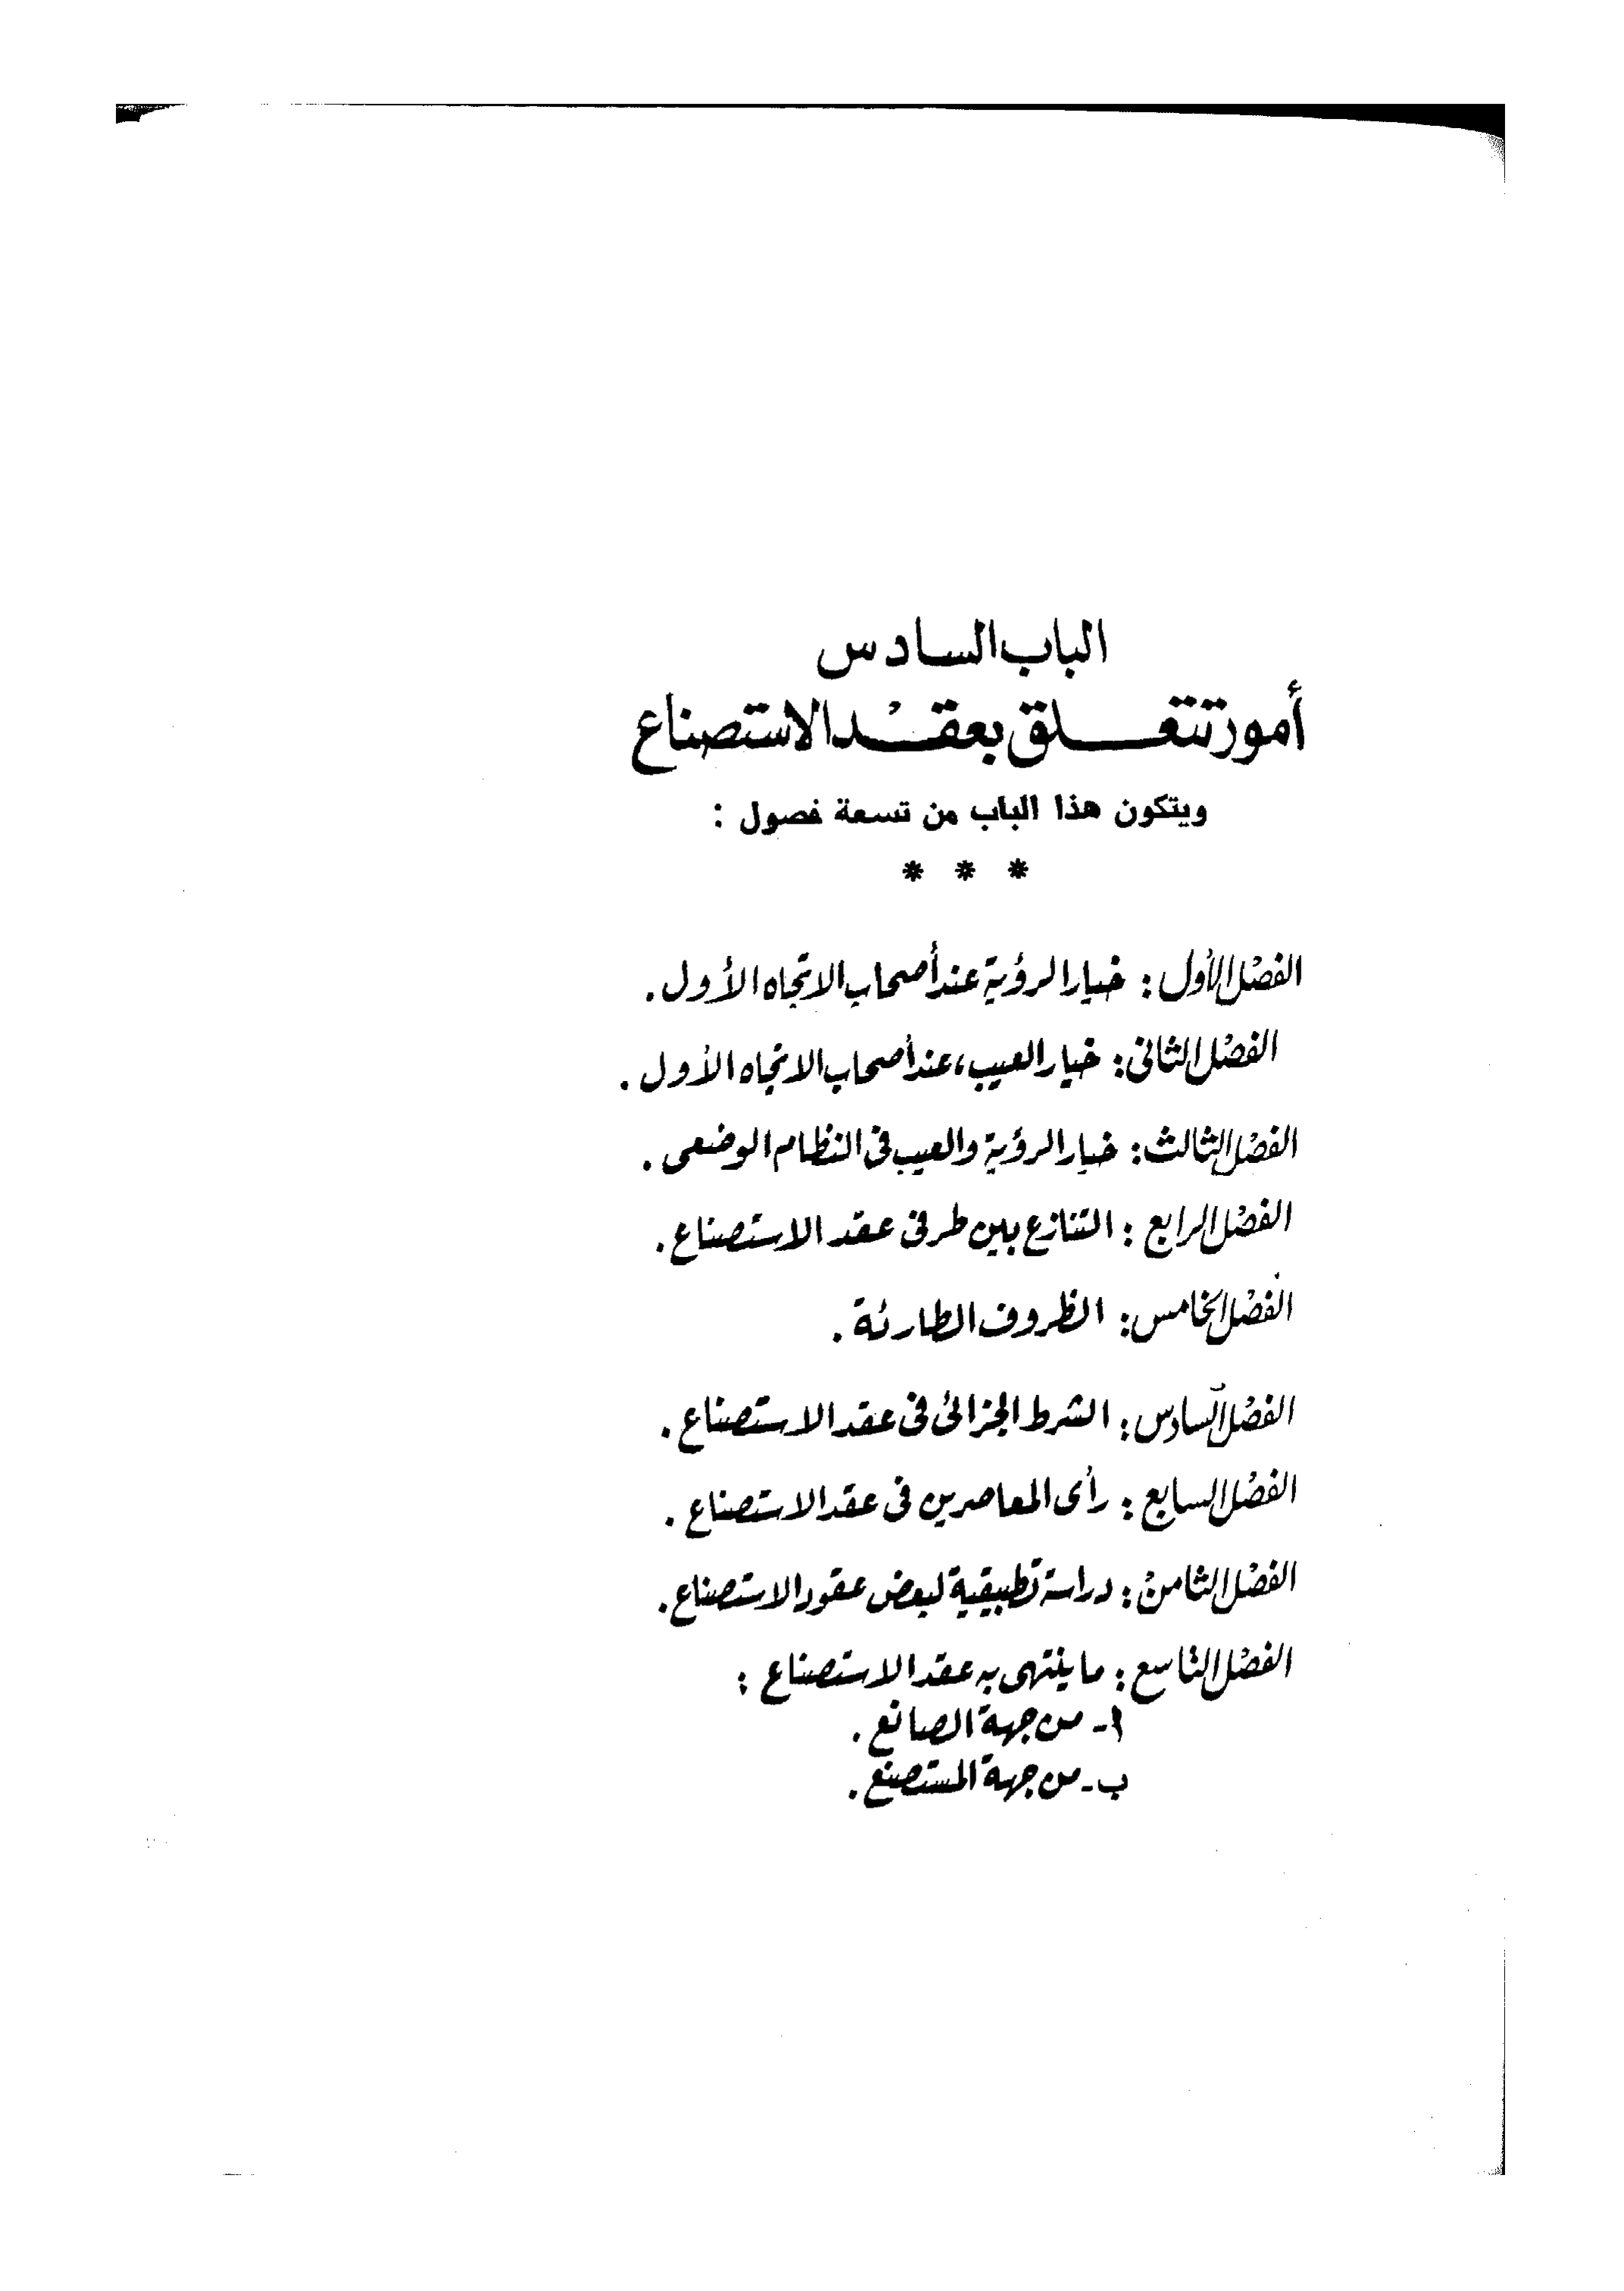 الباب السادس
أمور تتعلق بعقد الاستصناع
ويتكون هذا الباب من تسعة فصول :
* * *
الفصل الأول : خيار الرؤية عند أصحاب الاتجاه الأول .
الفصل الثانى : خيار العيب ، عند أصحاب الاتجاه الأول .
الفصل الثالث : خيار الرؤية والعيب فى النظام الوضعى .
الفصل الرابع : التنازع بين طرفى عقد الاستصناع .
الفصل الخامس : الظروف الطارئة .
الفصل السادس : الشرط الجزائى فى عقد الاستصناع .
الفصل السابع : رأى المعاصرين فى عقد الاستصناع .
الفصل الثامن : دراسة تطبيقية لبعض عقود الاستصناع .
الفصل التاسع : ما ينتهى به عقد الاستصناع :
أ - من جهة الصانع .
ب - من جهة المستصنع .